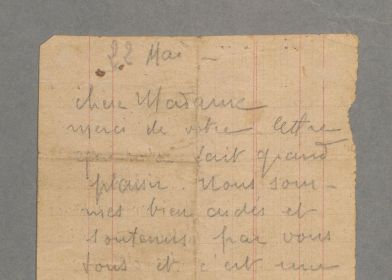 22 Mai —
chere Madame
merci de votre lettre
qui m'a fait grand
plaisir. Nous som-
mes bien aidés et
soutenus par vous
tous et c'est une